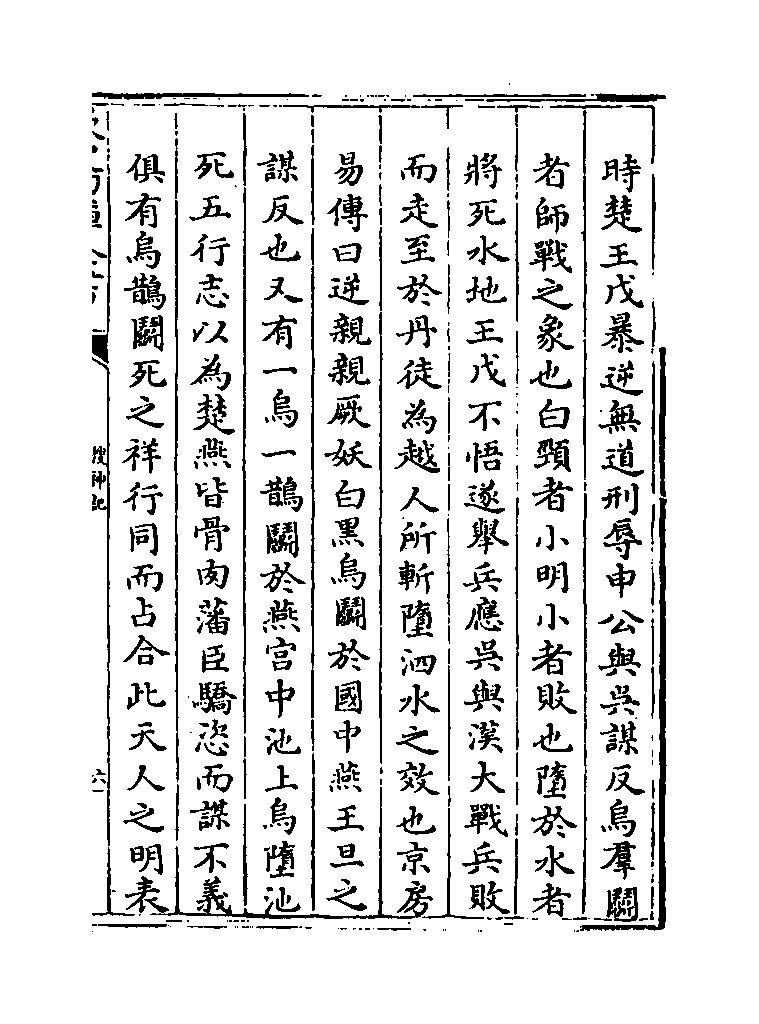 時楚王戊暴逆無道刑辱申公與吳謀反烏羣鬭
者師戰之象也白頸者小明小者敗也墮於水者
將死水地王戊不悟遂舉兵應吳與漢大戰兵敗
而走至於丹徒為越人所斬墮泗水之效也京房
易傳曰逆親親厥妖白黑烏鬭於國中燕王旦之
謀反也又有一烏一鵲鬭於燕宫中池上烏墮池
死五行志以為楚燕皆骨肉藩臣驕恣而謀不義
俱有烏鵲鬭死之祥行同而占合此天人之明表
搜神記
六